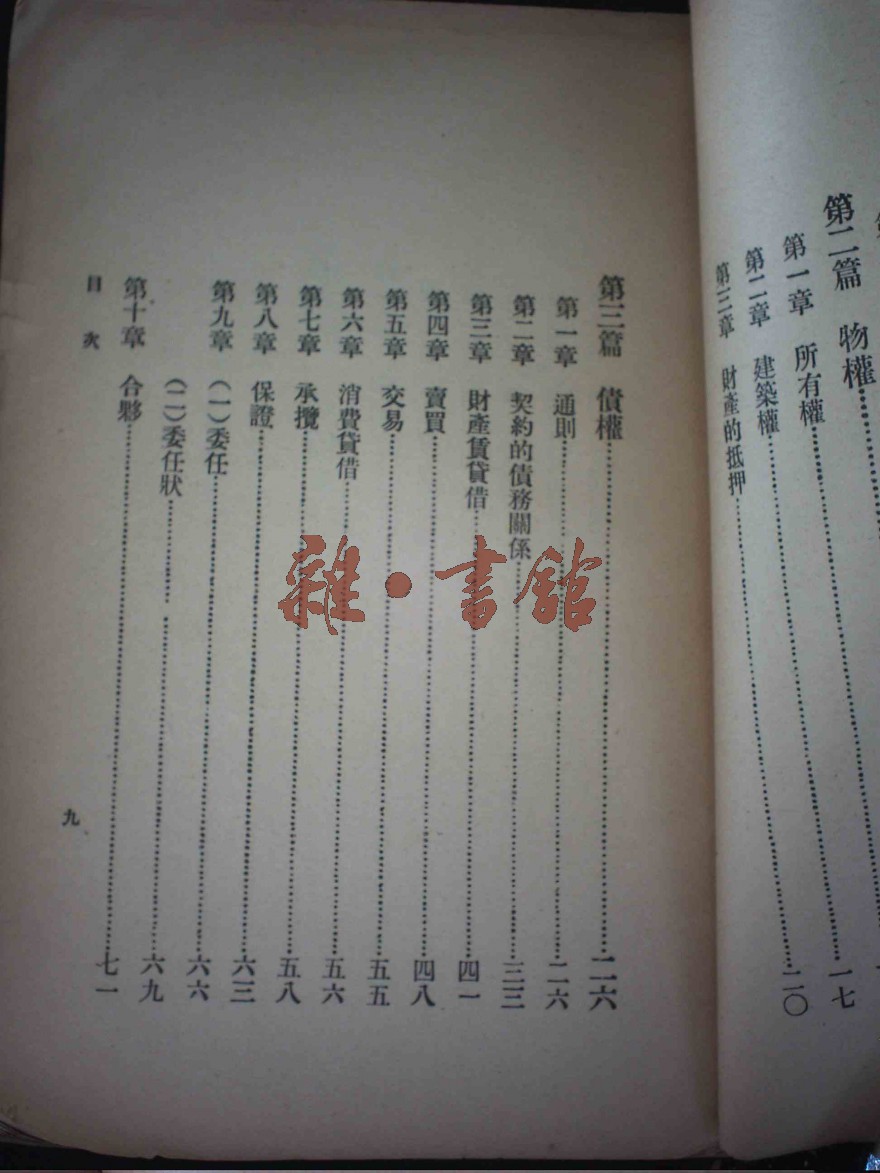 第二篇 物權⋯⋯
第一章 所有權⋯⋯一七
第二章 建築權⋯⋯二〇
第三章 財產的抵押⋯⋯
第三篇 債權⋯⋯二六
第一章 通則⋯⋯二六
第二章 契約的債務關係⋯⋯三三
第三章 財產賃貸借⋯⋯四一
第四章 賣買⋯⋯四八
第五章 交易⋯⋯五五
第六章 消費貸借⋯⋯五六
第七章 承攬⋯⋯五八
第八章 保證⋯⋯六三
第九章 (一)委任⋯⋯六六
(二)委任狀⋯⋯六九
第十章 合夥⋯⋯七一
目次
九
雜·書館